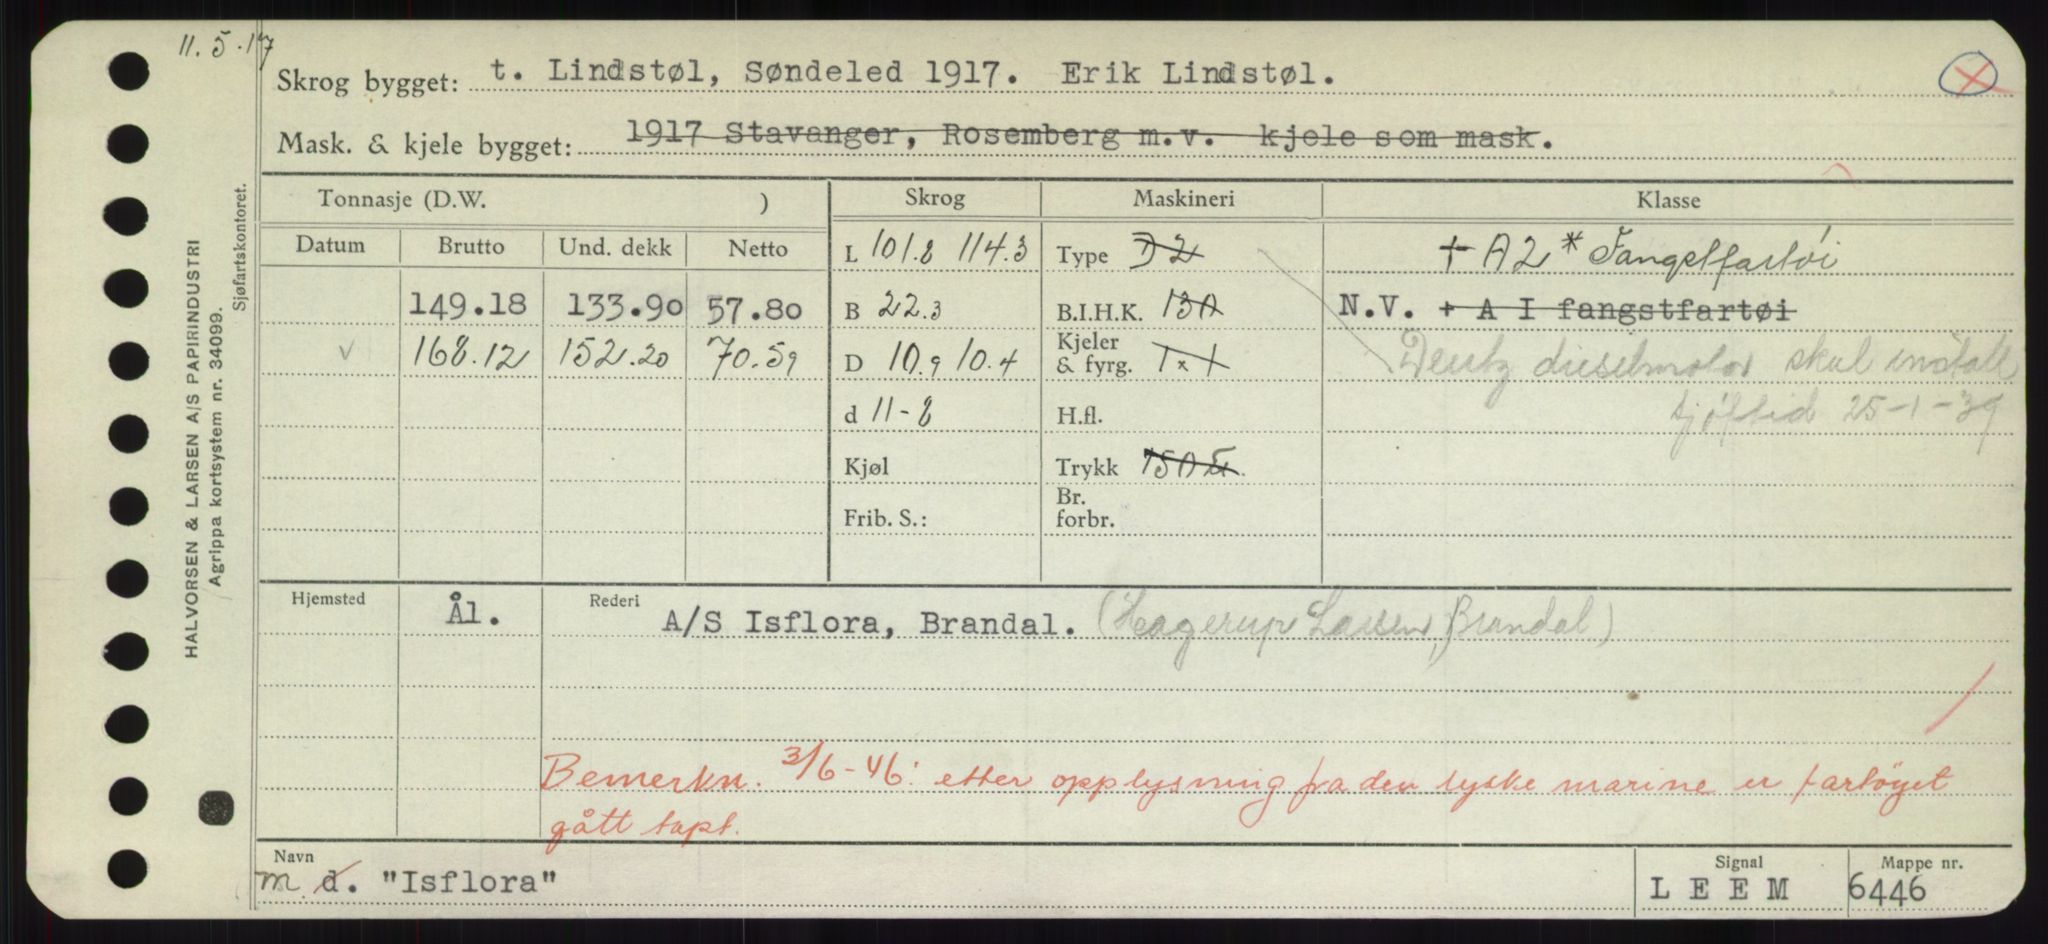 11.5.17
Skrog bygget: t. Lindstøl, Søndeled 1917. Erik Lindstøl.
Mask. & kjele bygget: 1917 Stavanger, Rosemberg m.v. kjele som mask.
Tonnasje (D.W. ) Skrog Maskineri Klasse
Datum Brutto Und. dekk Netto
L 101.8 114.3 Type D2 + A2 * Fangstfartøi
149.18 133.90 57.80 B 22.3 B.I.H.K. 130 N.V. + A I fangstfartøi
v 168.12 152.20 70.59 D 10.9 10.4 Kjeler & fyrg. 1 x 1 Deutz dieselmotor skal install
d 11-8 H.fl. sjøftid 25-1-39
Kjøl Trykk 150
Frib. S.: Br. forbr.
Hjemsted Ål. Rederi A/S Isflora, Brandal. (Hagerup Larsen, Brandal)
Bemerkn. 3/6-46: etter opplysning fra den tyske marine er fartøyet
gått tapt.
Navn Signal Mappe nr.
m d. "Isflora" L E E M 6446
HALVORSEN & LARSEN A/S PAPIRINDUSTRI
Agrippa kortsystem nr. 34099.
Sjøfartskontoret.